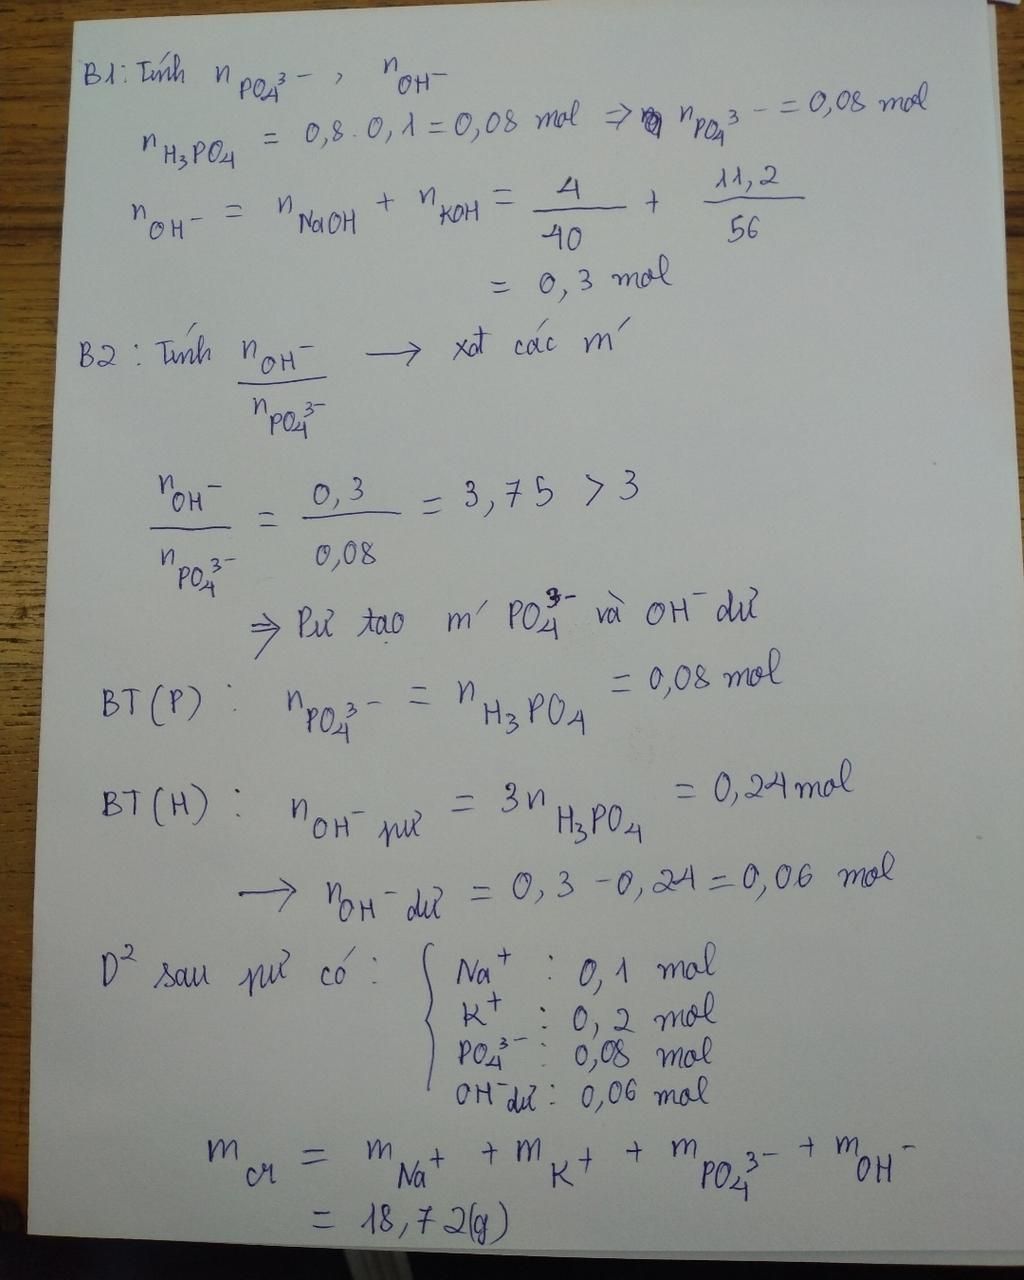 B1: Tính n PO₄³⁻, n OH⁻
n H₃PO₄ = 0,8 . 0,1 = 0,08 mol ⇒ n PO₄³⁻ = 0,08 mol
n OH⁻ = n NaOH + n KOH = 4/40 + 11,2/56
= 0,3 mol
B2: Tính n OH⁻ / n PO₄³⁻ → xét các m'
n OH⁻ / n PO₄³⁻ = 0,3 / 0,08 = 3,75 > 3
⇒ Pư tạo m' PO₄³⁻ và OH⁻ dư
BT(P): n PO₄³⁻ = n H₃PO₄ = 0,08 mol
BT(H): n OH⁻ pư = 3n H₃PO₄ = 0,24 mol
→ n OH⁻ dư = 0,3 - 0,24 = 0,06 mol
D² sau pư có: { Na⁺ : 0,1 mol
K⁺ : 0,2 mol
PO₄³⁻ : 0,08 mol
OH⁻ dư : 0,06 mol
m cr = m Na⁺ + m K⁺ + m PO₄³⁻ + m OH⁻
= 18,72(g)